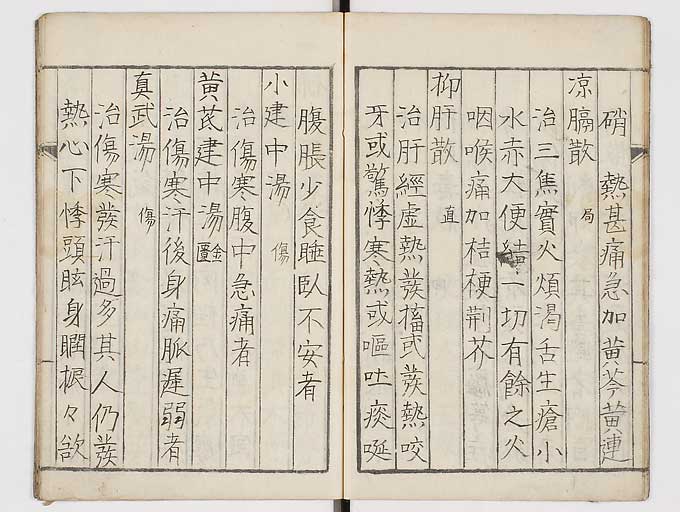 硝　熱甚痛急加黄芩黄連
凉膈散　局
治三焦實火煩渇舌生瘡小
水赤大便結一切有餘之火
咽喉痛加桔梗荊芥
抑肝散　直
治肝經虚熱發搐或發熱咬
牙或驚悸寒熱或嘔吐痰涎
腹脹少食睡臥不安者
小建中湯　傷
治傷寒腹中急痛者
黄芪建中湯　金匱
治傷寒汗後身痛脈遲弱者
真武湯　傷
治傷寒發汗過多其人仍發
熱心下悸頭眩身瞤振々欲